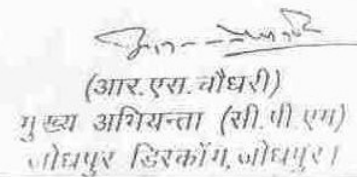 (आर.एस.चौधरी)
मुख्य अभियन्ता (सी.पी.एम)
जोधपुर डिस्कॉम, जोधपुर।